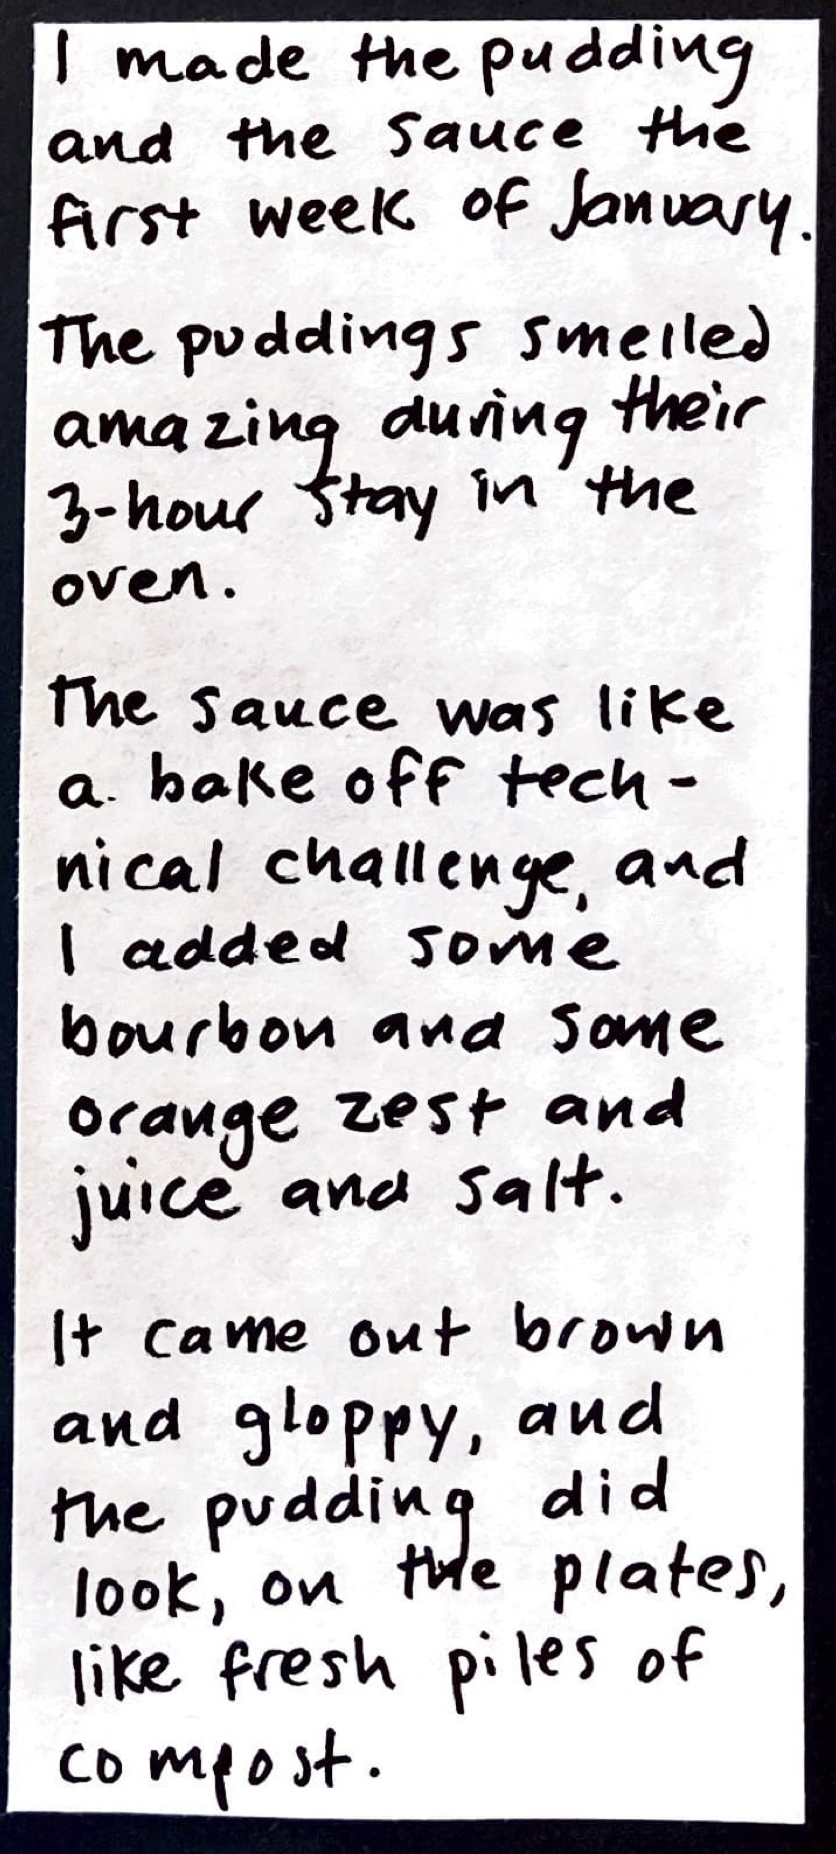 I made the pudding
and the sauce the
first week of January.
The puddings smelled
amazing during their
3-hour stay in the
oven.
The sauce was like
a bake off tech-
nical challenge, and
I added some
bourbon and some
orange zest and
juice and salt.
It came out brown
and gloppy, and
the pudding did
look, on the plates,
like fresh piles of
compost.